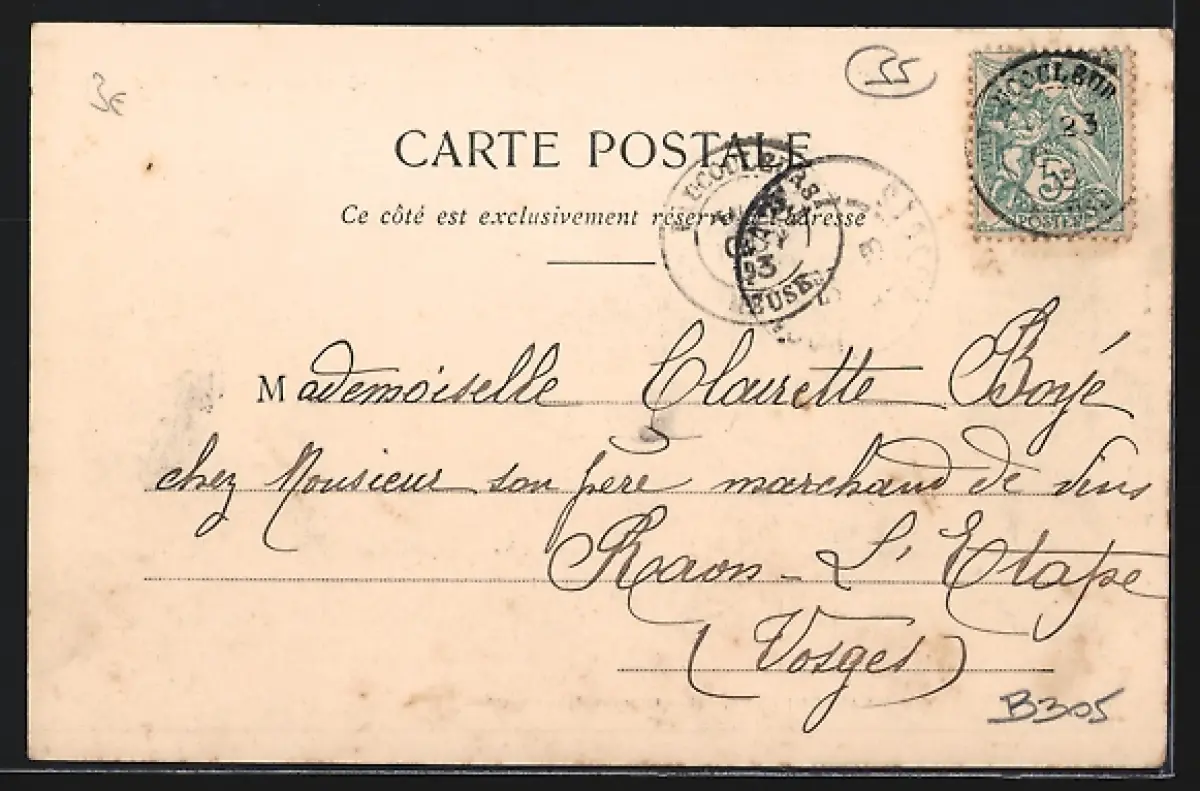 3€
55
CARTE POSTALE
Ce côté est exclusivement réservé à l'adresse
23
5
POSTES
MEUSE
Mademoiselle Clairette Boyé
chez Monsieur son père marchand de vins
Raon-L'Etape
(Vosges)
B305